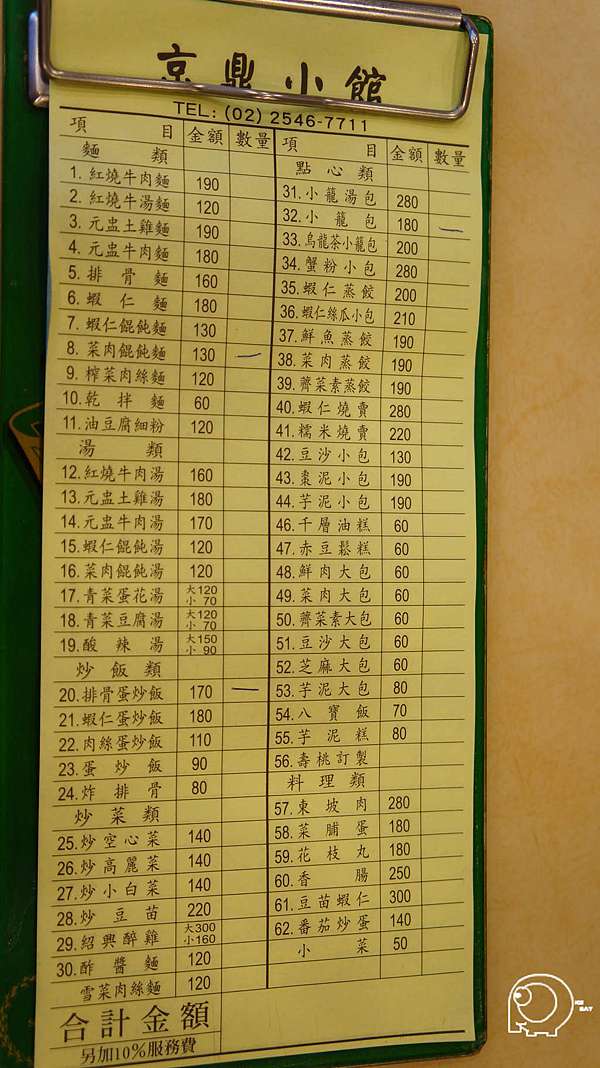 京鼎小館
TEL: (02) 2546-7711
項 目 金額 數量
麵 類
1. 紅燒牛肉麵 190
2. 紅燒牛湯麵 120
3. 元盅土雞麵 190
4. 元盅牛肉麵 180
5. 排骨麵 160
6. 蝦仁麵 180
7. 蝦仁餛飩麵 130
8. 菜肉餛飩麵 130 一
9. 榨菜肉絲麵 120
10. 乾拌麵 60
11. 油豆腐細粉 120
湯 類
12. 紅燒牛肉湯 160
13. 元盅土雞湯 180
14. 元盅牛肉湯 170
15. 蝦仁餛飩湯 120
16. 菜肉餛飩湯 120
17. 青菜蛋花湯 大120 小 70
18. 青菜豆腐湯 大120 小 70
19. 酸辣湯 大150 小 90
炒飯類
20. 排骨蛋炒飯 170 一
21. 蝦仁蛋炒飯 180
22. 肉絲蛋炒飯 110
23. 蛋炒飯 90
24. 炸排骨 80
炒菜類
25. 炒空心菜 140
26. 炒高麗菜 140
27. 炒小白菜 140
28. 炒豆苗 220
29. 紹興醉雞 大300 小160
30. 酢醬麵 120
雪菜肉絲麵 120
合計金額
另加10%服務費
項 目 金額 數量
點心類
31. 小籠湯包 280
32. 小籠包 180 一
33. 烏龍茶小籠包 200
34. 蟹粉小包 280
35. 蝦仁蒸餃 200
36. 蝦仁絲瓜小包 210
37. 鮮魚蒸餃 190
38. 菜肉蒸餃 190
39. 薺菜素蒸餃 190
40. 蝦仁燒賣 280
41. 糯米燒賣 220
42. 豆沙小包 130
43. 棗泥小包 190
44. 芋泥小包 190
46. 千層油糕 60
47. 赤豆鬆糕 60
48. 鮮肉大包 60
49. 菜肉大包 60
50. 薺菜素大包 60
51. 豆沙大包 60
52. 芝麻大包 60
53. 芋泥大包 80
54. 八寶飯 70
55. 芋泥糕 80
56. 壽桃訂製
料理類
57. 東坡肉 280
58. 菜脯蛋 180
59. 花枝丸 180
60. 香腸 250
61. 豆苗蝦仁 300
62. 番茄炒蛋 140
小菜 50